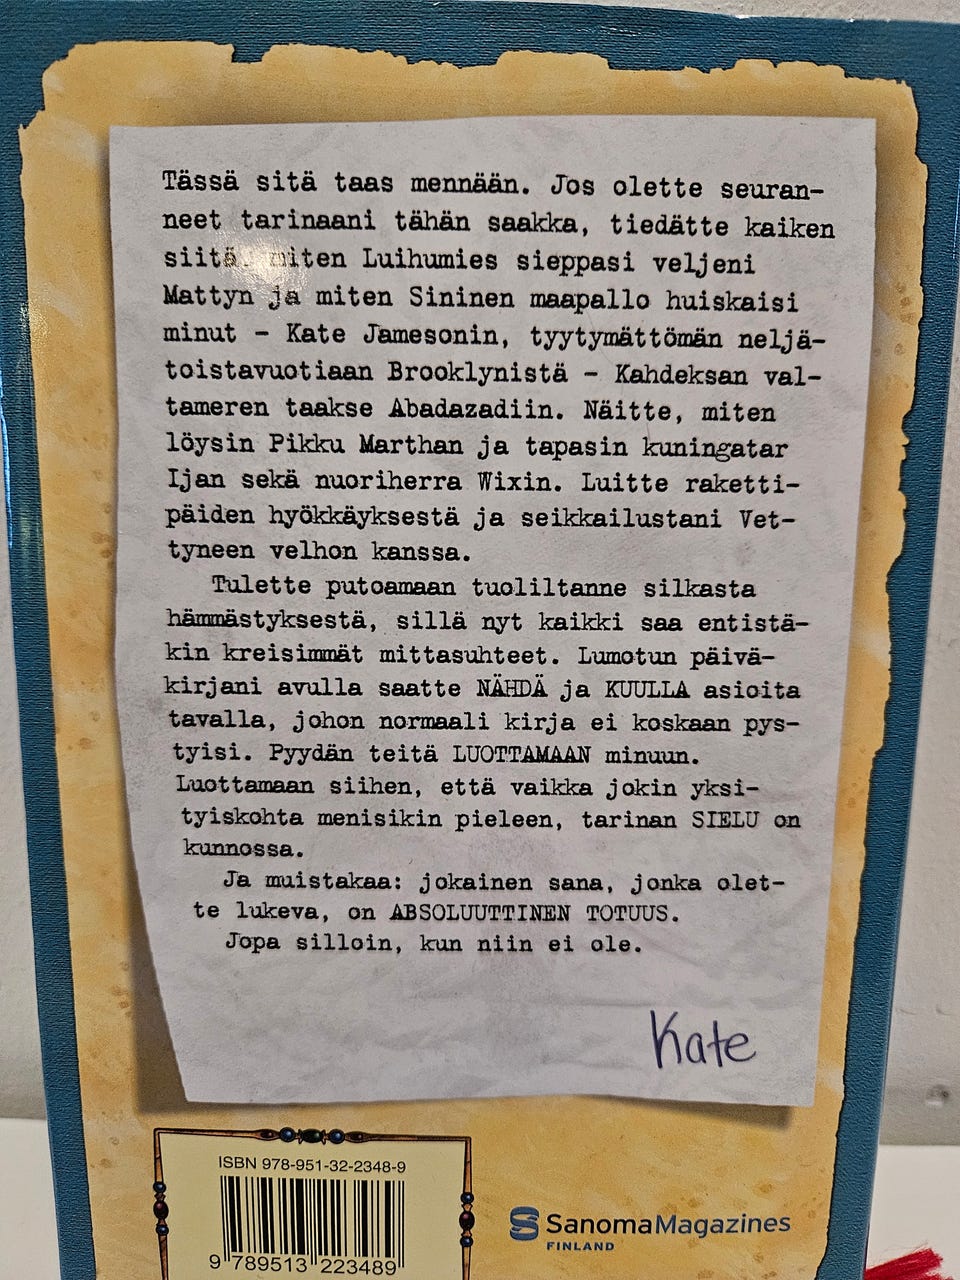 Tässä sitä taas mennään. Jos olette seuran-
neet tarinaani tähän saakka, tiedätte kaiken
siitä, miten Luihumies sieppasi veljeni
Mattyn ja miten Sininen maapallo huiskaisi
minut – Kate Jamesonin, tyytymättömän neljä-
toistavuotiaan Brooklynistä – Kahdeksan val-
tameren taakse Abadazadiin. Näitte, miten
löysin Pikku Marthan ja tapasin kuningatar
Ijan sekä nuoriherra Wixin. Luitte raketti-
päiden hyökkäyksestä ja seikkailustani Vet-
tyneen velhon kanssa.
Tulette putoamaan tuoliltanne silkasta
hämmästyksestä, sillä nyt kaikki saa entistä-
kin kreisimmät mittasuhteet. Lumotun päivä-
kirjani avulla saatte NÄHDÄ ja KUULLA asioita
tavalla, johon normaali kirja ei koskaan pys-
tyisi. Pyydän teitä LUOTTAMAAN minuun.
Luottamaan siihen, että vaikka jokin yksi-
tyiskohta menisikin pieleen, tarinan SIELU on
kunnossa.
Ja muistakaa: jokainen sana, jonka olet-
te lukeva, on ABSOLUUTTINEN TOTUUS.
Jopa silloin, kun niin ei ole.
Kate
ISBN 978-951-32-2348-9
9 789513 223489
SanomaMagazines
FINLAND